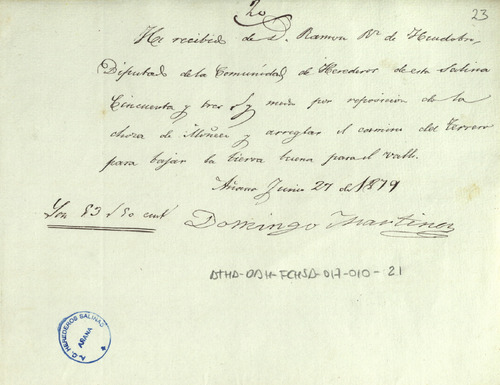 20
23
He recibido de D. Ramon Rz. de Heredia,
Diputado de la Comunidad de Herederos de esta Salina
Cincuenta y tres rs. y medio por reposicion de la
choza de y arreglar el camino del Terrero
para bajar la tierra buena para el valle.
Añana Junio 27 de 1879
Son 53 rs 50 cents
Domingo Martinez
ATHA-DAH-FCHSA-017-010-21
A. C. HEREDEROS SALINAS
AÑANA